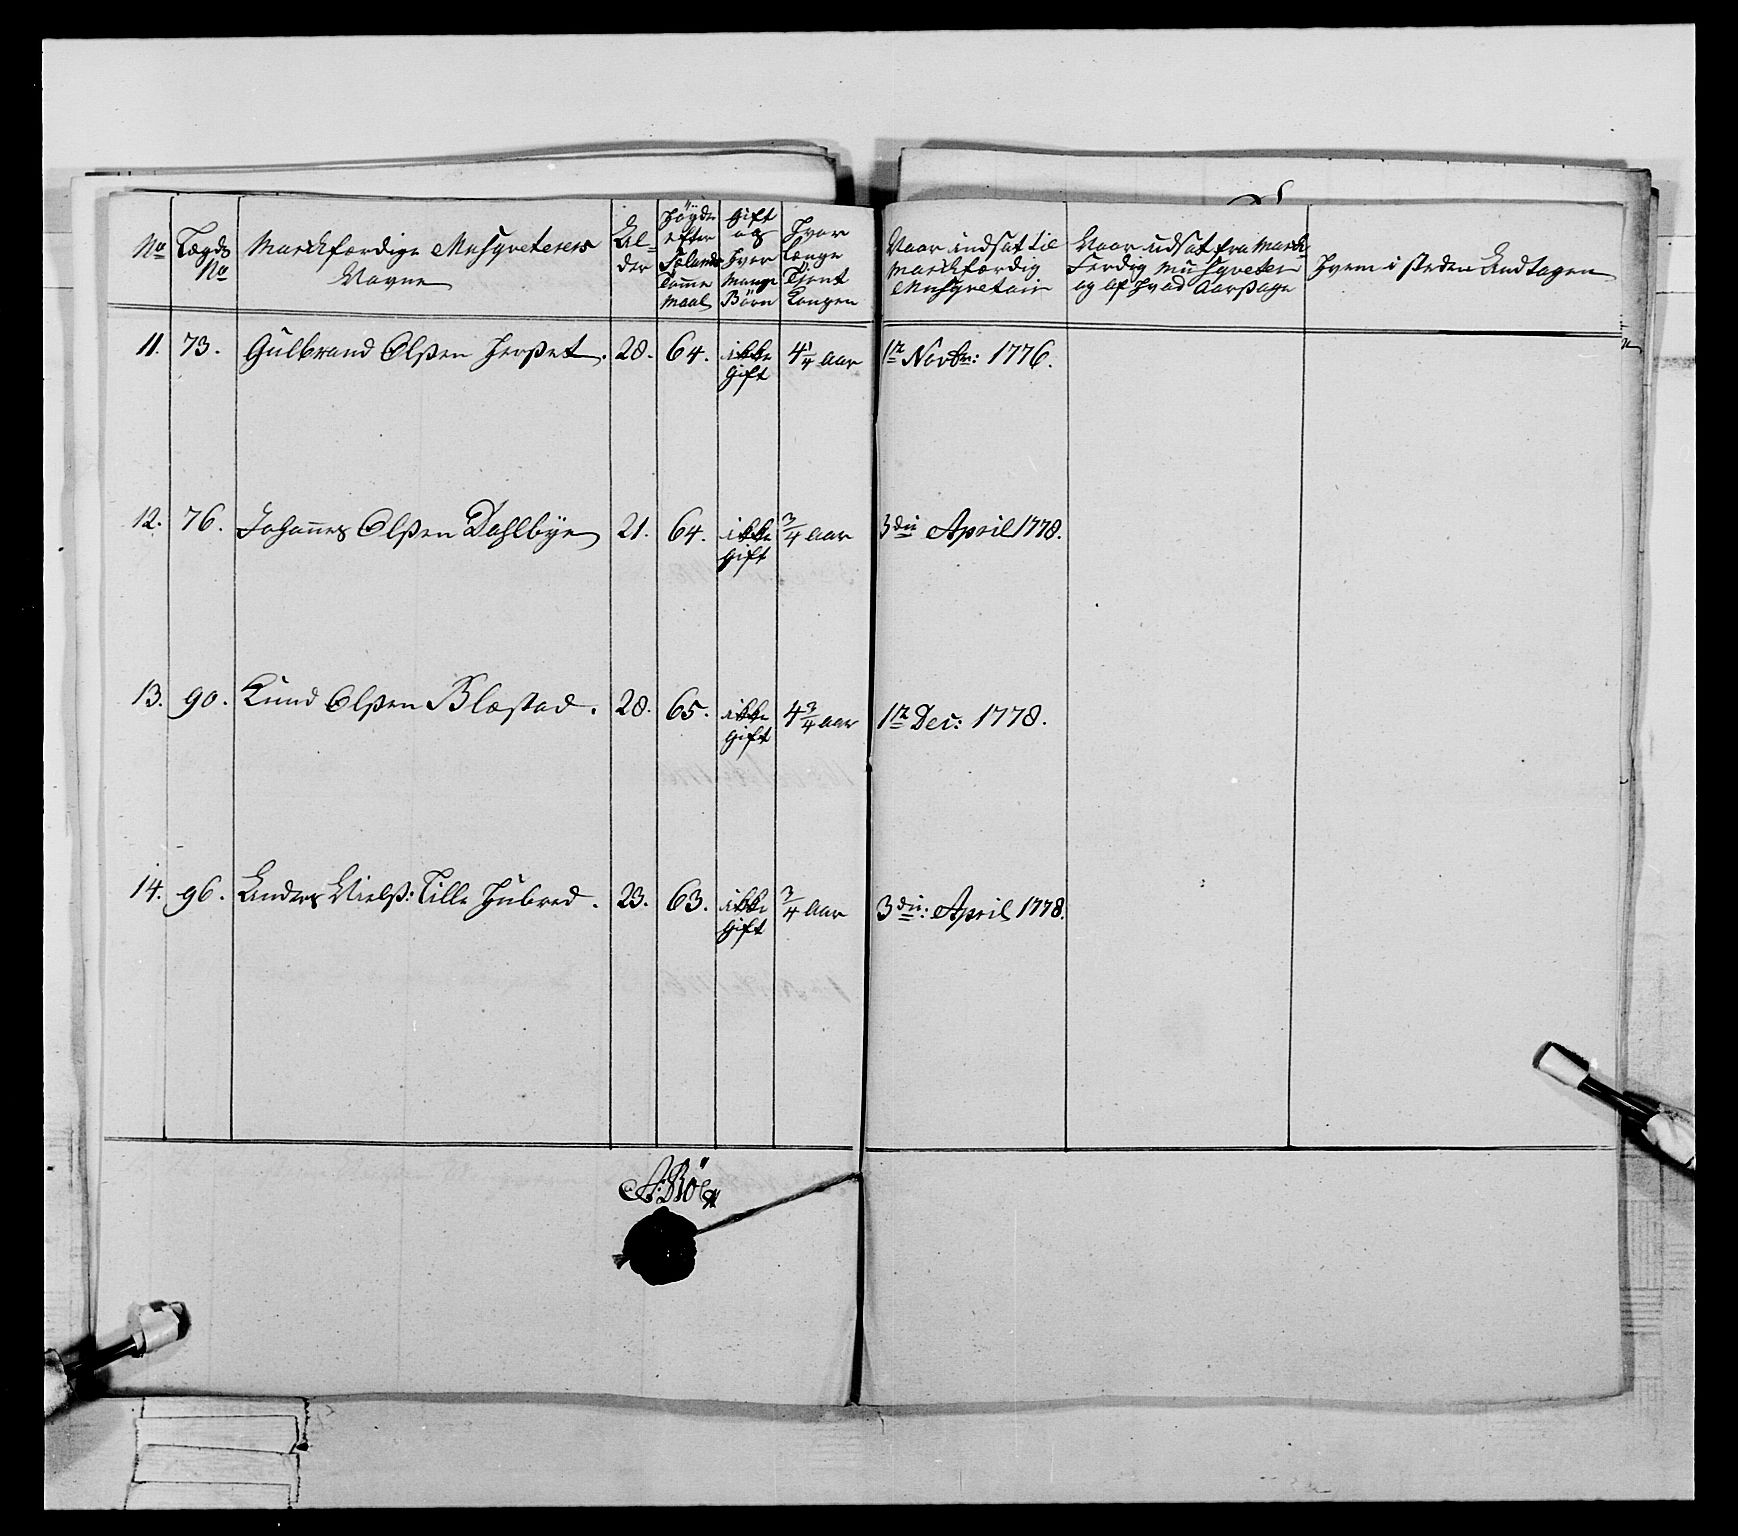 No
Lægds No
Marchfærdige Musqveterers Navne
Al-
der
Høyde
efter
Sælands
Tomme
maal
Gift
og
hvor
mange
Børn
Hvor
Længe
Tient
Kongen
Naar indsat til
marchfærdig
Musqveteir
Naar udsat fra March-
Ferdig Musqveteer
og af hvad Aarsage
Hvem i steden Andtagen
11. 73. Gulbrand Olßen Herßet. 28. 64. ikke 4 1/4 Aar 1te Novbr: 1776.
Gift
12. 76. Johannes Olßen Dahlbye 21. 64. ikke 3/4 Aar 3die April 1778.
Gift
13. 90. Knud Olßen Blæstad. 28. 65. ikke 4 3/4 Aar 1te Dec: 1778.
Gift
14. 96. Anders Nielß: Lille Hubred. 23. 63. ikke 3/4 Aar 3die: April 1778.
Gift